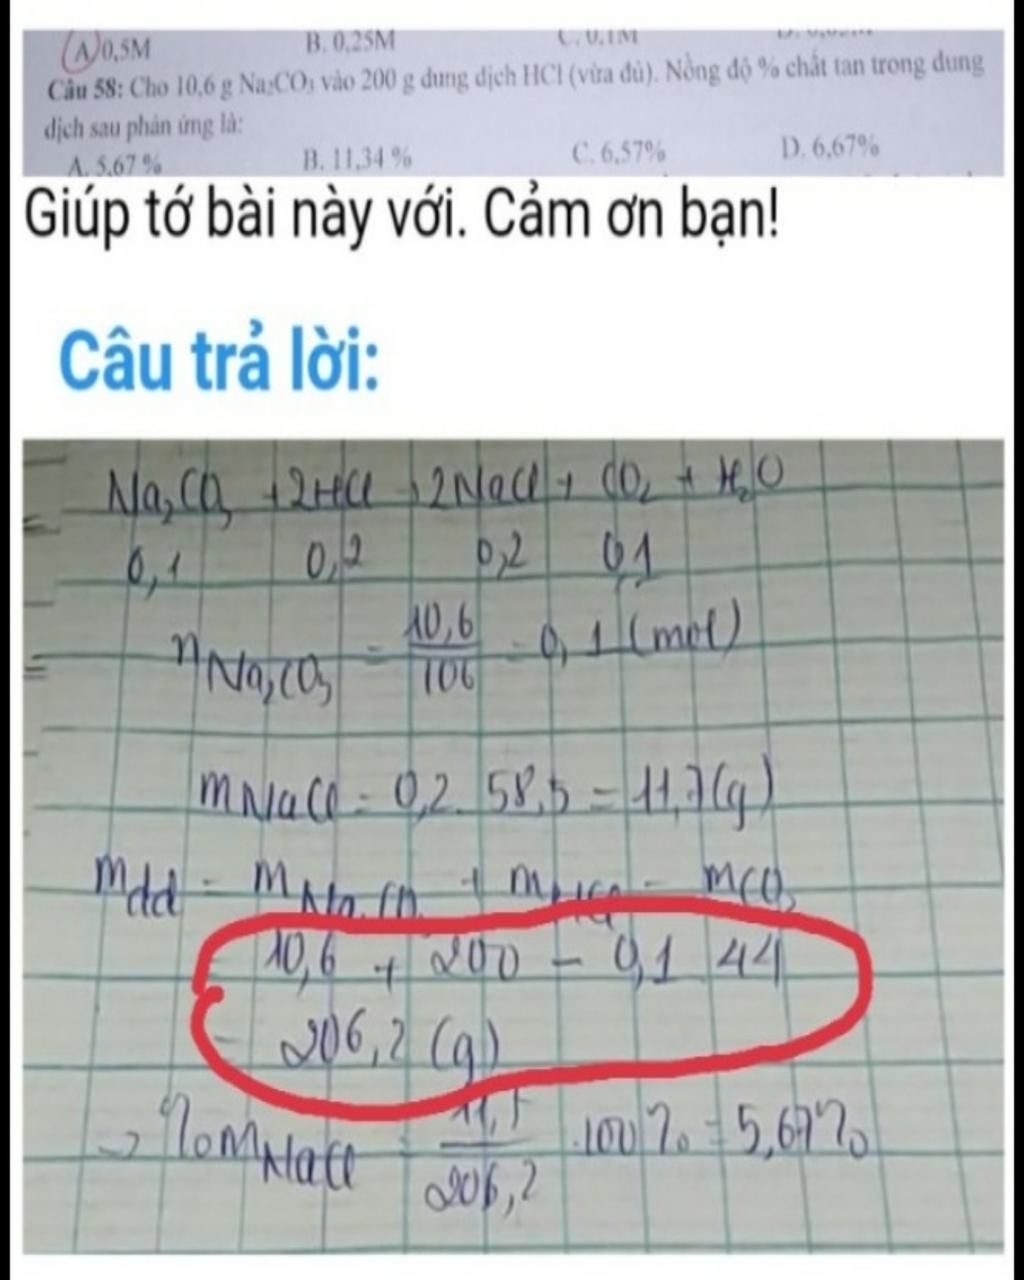 A 0,5M B. 0,25M C. 0,1M
Câu 58: Cho 10,6 g Na₂CO₃ vào 200 g dung dịch HCl (vừa đủ). Nồng độ % chất tan trong dung
dịch sau phản ứng là:
A. 5,67 % B. 11,34 % C. 6,57% D. 6,67%
Giúp tớ bài này với. Cảm ơn bạn!
Câu trả lời:
Na₂CO₃ + 2HCl → 2NaCl + CO₂ + H₂O
0,1 0,2 0,2 0,1
nNa₂CO₃ = 10,6/106 = 0,1 (mol)
mNaCl = 0,2 . 58,5 = 11,7 (g)
mdd = mNa₂CO₃ + mHCl - mCO₂
10,6 + 200 - 0,1 44
= 206,2 (g)
→ %mNaCl = 11,7/206,2 .100% = 5,67%